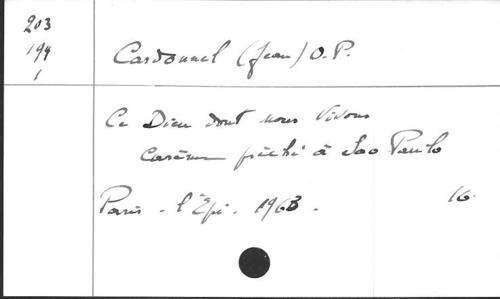 203
194
1
Cardonnel (Jean) O.P.
Ce Dieu dont nous vivons
Carême prêché à Sao Paulo
Paris - l'Epi - 1963 -
16